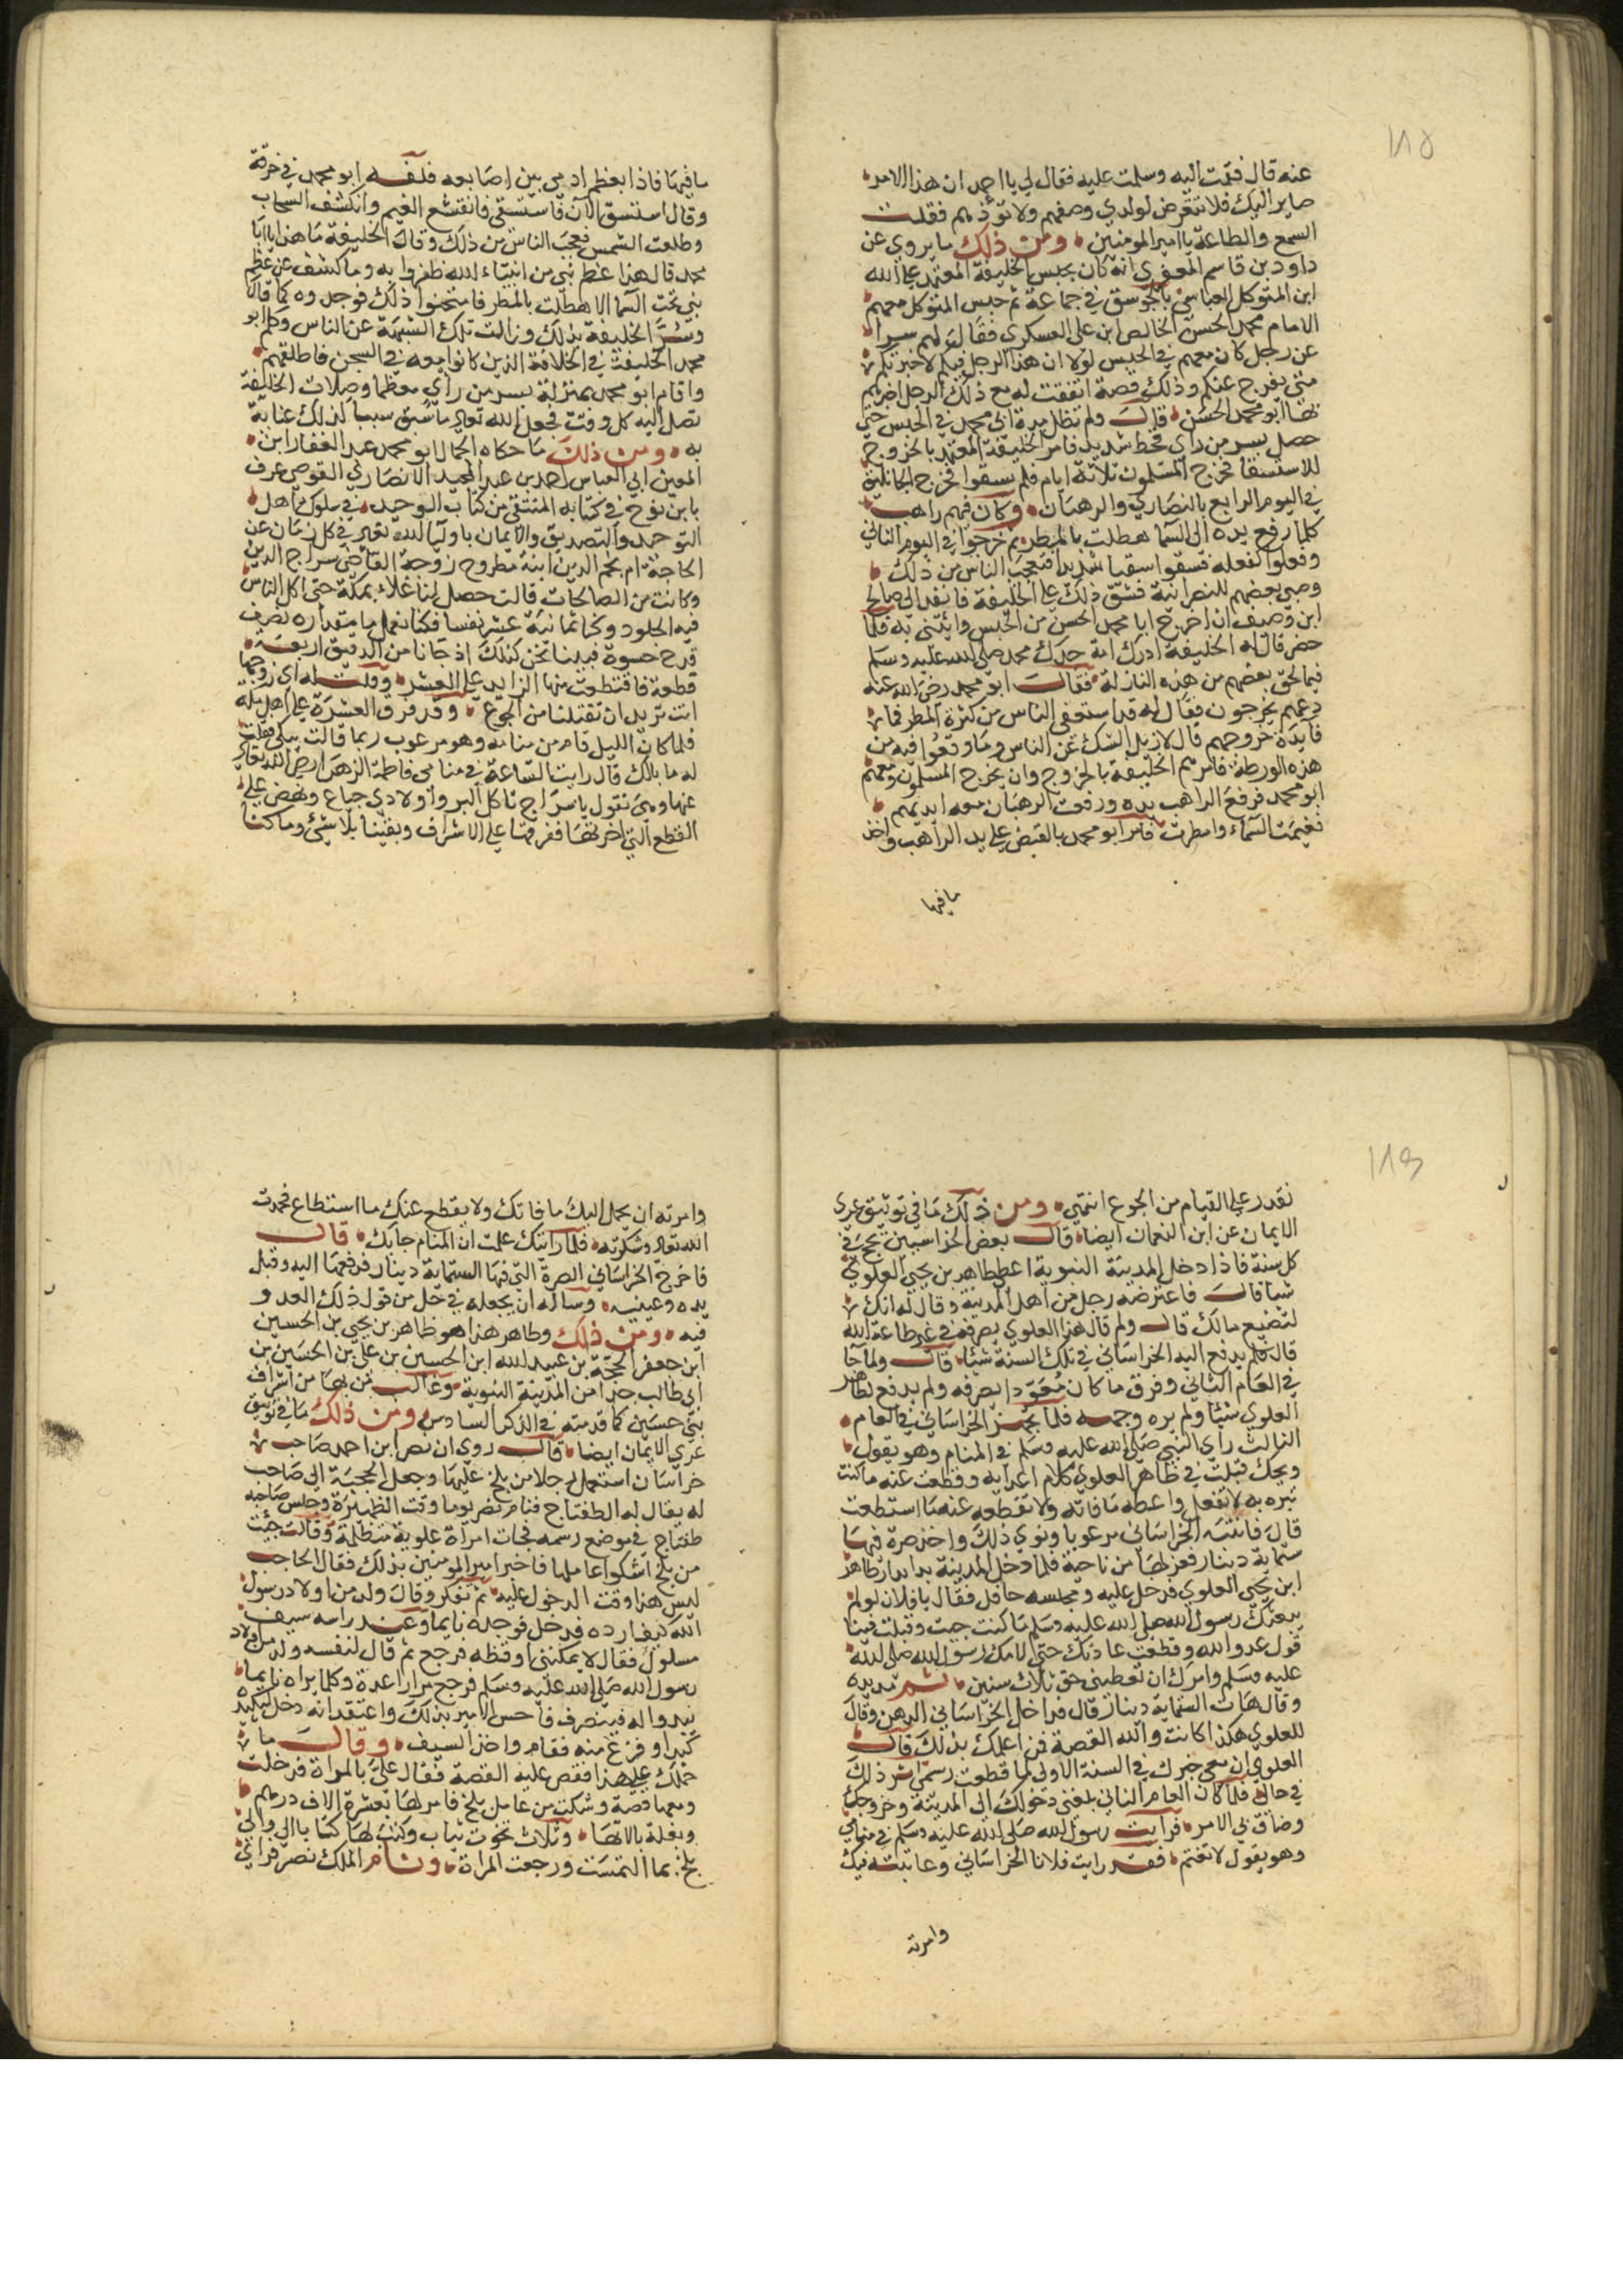 ١٨٥
عنه قال فقمت اليه وسلمت عليه فقال لي يا احمد ان هذا الامر
صاير اليك فلا تتعرض لولدي وصفهم ولا تؤذهم فقلت
السمع والطاعة يا امير المومنين ومن ذلك ما يروى عن
داود بن قاسم الجعفري انه كان بحبس الخليفة المعتمد على الله
ابن المتوكل العباسي بالجوسق في جماعة ثم حبس المتوكل معهم
الامام محمد الحسن الخالص ابن علي العسكري فقال لهم سرا
عن رجل كان معهم في الحبس لولا ان هذا الرجل فيكم لاخبرتكم
متى يفرج عنكم وذلك قصة اتفقت له مع ذلك الرجل اخبرهم
بها ابو محمد الحسن قال ولم تطل مدة ابي محمد في الحبس حتى
حصل بسر من راى قحط شديد فامر الخليفة المعتمد بالخروج
للاستسقا فخرج المسلمون ثلاثة ايام فلم يسقوا فخرج الجاثليق
في اليوم الرابع بالنصارى والرهبان وكان فيهم راهب
كلما رفع يده الى السما هطلت بالمطر ثم خرجوا في اليوم الثاني
وفعلوا كفعله فسقوا سقيا شديدا فتعجب الناس من ذلك
وصبى بعضهم للنصرانية فشق ذلك على الخليفة فانفذ الى صالح
ابن وصيف ان اخرج ابا محمد الحسن من الحبس وائتني به فلما
حضر قال له الخليفة ادرك امة جدك محمد صلى الله عليه وسلم
فيما لحق بعضهم من هذه النازلة فقال ابو محمد رضي الله عنه
دعهم يخرجون فقال له قد استعفى الناس من كثرة المطر فما
فايدة خروجهم قال لازيل الشك عن الناس وما وقعوا فيه من
هذه الورطة فامرهم الخليفة بالخروج وان يخرج المسلمون معهم
ابو محمد فرفع الراهب يده ورفعت الرهبان معه ايديهم
فغيمت السماء وامطرت فامر ابو محمد بالقبض على يد الراهب واخذ
ما فيها
ما فيها فاذا بعظم ادمي بين اصابعه فلفه ابو محمد في خرقة
وقال استسق الان فاستسقى فانقشع الغيم وانكشف السحاب
وطلعت الشمس فعجب الناس من ذلك وقال الخليفة ما هذا يا ابا
محمد قال هذا عظم نبي من انبياء الله ظفروا به وما كشف عن عظم
نبي تحت السما الا هطلت بالمطر فامتحنوا ذلك فوجدوه كما قال
وسر الخليفة بذلك وزالت تلك الشبهة عن الناس وكلم ابو
محمد الخليفة في اخلاقه الذين كانوا معه في السجن فاطلقهم
واقام ابو محمد بمنزله بسر من راى معظما وصلات الخليفة
تصل اليه كل وقت فجعل الله تعالى ما سبق سببا لذلك عناية
به ومن ذلك ما حكاه الجمال ابو محمد عبد الغفار ابن
المعين ابي العباس احمد بن عبد المجيد الانصاري القوصي عرف
بابن نوح في كتابه المنتقى من كتاب الوحيد في سلوك اهل
التوحيد والتصديق والايمان باوليا الله تعالى في كل زمان عن
الحاجة ام نجم الدين ابنة مطروح زوجة القاضي سراج الدين
وكانت من الصالحات قالت حصل لنا غلاء بمكة حتى اكل الناس
فيه الجلود وكنا ثمانية عشر نفسا فكنا نعمل ما مقداره نصف
قدح حسوة فبينا نحن كذلك اذ جانا من الدقيق اربعة
قطعة فاقتطعت منها الزايد على العشر وقلت له اي زوجها
انت تريد ان تقتلنا من الجوع وقد فرق العشرة على اهل مكة
فلما كان الليل قام من منامه وهو مرعوب ربما قالت يبكي فقلت
له ما بالك قال رايت الساعة في منامي فاطمة الزهرا رضي الله تعالى
عنها وهي تقول يا سراج تاكل البر واولادي جياع ونهض على
القطع التي اخرتها ففرقها على الاشراف وبقينا بلا شيء وما كنا
١٨٦
نقدر على القيام من الجوع انتهى ومن ذلك ما في توثيق عرى
الايمان عن ابن النعمان ايضا قال بعض الخراسبين يحج في
كل سنة فاذا دخل المدينة النبوية اعطى طاهر بن يحيى العلوي
شيا قال فاعترضه رجل من اهل المدينة وقال له انك
لتضيع مالك قال ولم قال هذا العلوي يصرفه في غير طاعة الله
قال فلم يدفع اليه الخراساني في تلك السنة شيا قال ولما جا
في العام الثاني وفرق ما كان معودا بصرفه ولم يدفع لطاهر
العلوي شيئا ولم يره وجهه فلما تجهز الخراساني في العام
الثالث راى النبي صلى الله عليه وسلم في المنام وهو يقول
ويحك قبلت في طاهر العلوي كلام اعدايه وقطعت عنه ما كنت
تبره به لا تفعل واعطه ما فاته ولا تقطعه عنه ما استطعت
قال فانتبه الخراساني مرعوبا ونوى ذلك واخذ صرة فيها
ستماية دينار فعزلها من ناحية فلما دخل المدينة بدا بدار طاهر
ابن يحيى العلوي فدخل عليه ومجلسه حافل فقال يا فلان لو لم
يبعثك رسول الله صلى الله عليه وسلم ما كنت جيت وقبلت فينا
قول عدو الله وقطعت عادتك حتى لامك رسول الله صلى الله
عليه وسلم وامرك ان تعطيني حق ثلاث سنين ثم مد يده
وقال هات الستماية دينار قال فداخل الخراساني الدهن وقال
للعلوي هكذا كانت والله القصة فمن اعلمك بذلك قال
العلوي ان معي خبرك في السنة الاولى لما قطعت رسمي اثر ذلك
في حالي فلما كان العام الثاني بلغني دخولك الى المدينة وخروجك
وضاق بي الامر فرايت رسول الله صلى الله عليه وسلم في منامي
وهو يقول لا تغتم فقد رايت فلانا الخراساني وعاتبته فيك
وامرته
وامرته ان يحمل اليك ما فاتك ولا يقطع عنك ما استطاع فحمدت
الله تعالى وشكرته فلما رايتك علمت ان المنام جابك قال
فاخرج الخراساني الصرة التي فيها الستماية دينار فدفعها اليه وقبل
يده وعينيه وساله ان يجعله في حل من قول ذلك العدو
فيه ومن ذلك وطاهر هذا هو طاهر بن يحيى بن الحسين
ابن جعفر الحجة بن عبيد الله ابن الحسين بن علي بن الحسين بن
ابي طالب جد امن المدينة النبوية وغالب من بها من اشراف
بني حسين كما قدمته في الذكر السادس ومن ذلك ما في توثيق
عرى الايمان ايضا قال روي ان نصر ابن احمد صاحب
خراسان استعمل رجلا من بلخ عليها وجعل الحجبة الى صاحب
له يقال له الطفتاج فنام نصر يوما وقت الظهيرة وجلس حاجبه
طفتاج في موضع رسمه فجات امراة علوية متظلمة وقالت جيت
من بلخ اشكوا عاملها فاخبر امير المومنين بذلك فقال الحاجب
ليس هذا وقت الدخول عليه ثم تفكر وقال ولد من اولاد رسول
الله كيف ارده فدخل فوجده نايما وعند راسه سيف
مسلول فقال لا يمكنني اوقظه فرجع ثم قال لنفسه ولد من اولاد
رسول الله صلى الله عليه وسلم فرجع مرارا عدة وكلما يراه نايما
يبدوا له فينصرف فاحس الامير بذلك واعتقد انه دخل ليكيد
كيدا وفزع منه فقام واخذ السيف وقال ما
حملك على هذا فقص عليه القصة فقال علي بالمراة فدخلت
ومعها قصة وشكت من عامل بلخ فامر لها بعشرة الاف درهم
وبغلة بالاتها وثلاث تخوت ثياب وكتب لها كتابا الى والي
بلخ بما التمست ورجعت المراة ونام الملك نصر فراى